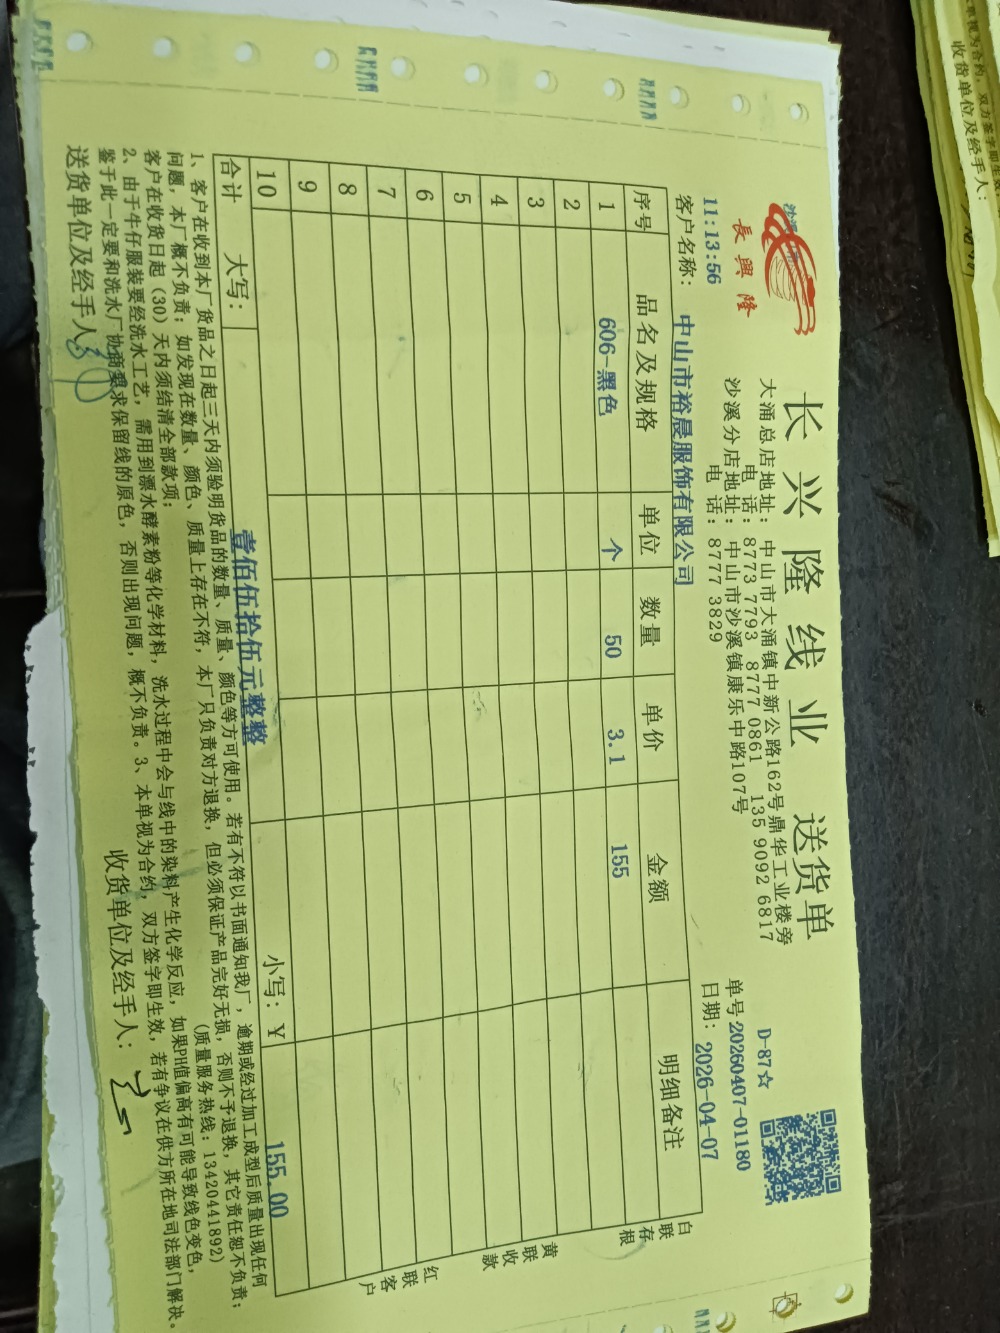 長興隆
长兴隆线业 送货单
D-87☆
大涌总店地址: 中山市大涌镇中新公路162号鼎华工业楼旁
电 话: 8773 7793 8777 0861 135 9092 6817
沙溪分店地址: 中山市沙溪镇康乐中路107号
电 话: 8777 3829
单号 20260407-01180
11:13:56
日期: 2026-04-07
客户名称: 中山市裕晨服饰有限公司
序号 品名及规格 单位 数量 单价 金额 明细备注
1 606-黑色 个 50 3.1 155
2
3
4
5
6
7
8
9
10
合计 大写: 壹佰伍拾伍元整整 小写: ¥ 155.00
白联存根
黄联收款
红联客户
1、客户在收到本厂货品之日起三天内须验明货品的数量、质量、颜色等方可使用。若有不符以书面通知我厂, 逾期或经过加工成型后质量出现任何
问题, 本厂概不负责; 如发现在数量、颜色、质量上存在不符, 本厂只负责对方退换, 但必须保证产品完好无损, 否则不予退换, 其它责任恕不负责;
客户在收货日起(30)天内须结清全部款项; (质量服务热线: 13420441892)
2、由于牛仔服装要经洗水工艺, 需用到漂水酵素粉等化学材料, 洗水过程中会与线中的染料产生化学反应, 如果PH值偏高有可能导致线色变色,
鉴于此一定要和洗水厂协商要求保留线的原色, 否则出现问题, 概不负责。3、本单视为合约, 双方签字即生效, 若有争议在供方所在地司法部门解决。
送货单位及经手人: 收货单位及经手人:
本单视为合约, 双方签字即生效
收货单位及经手人: